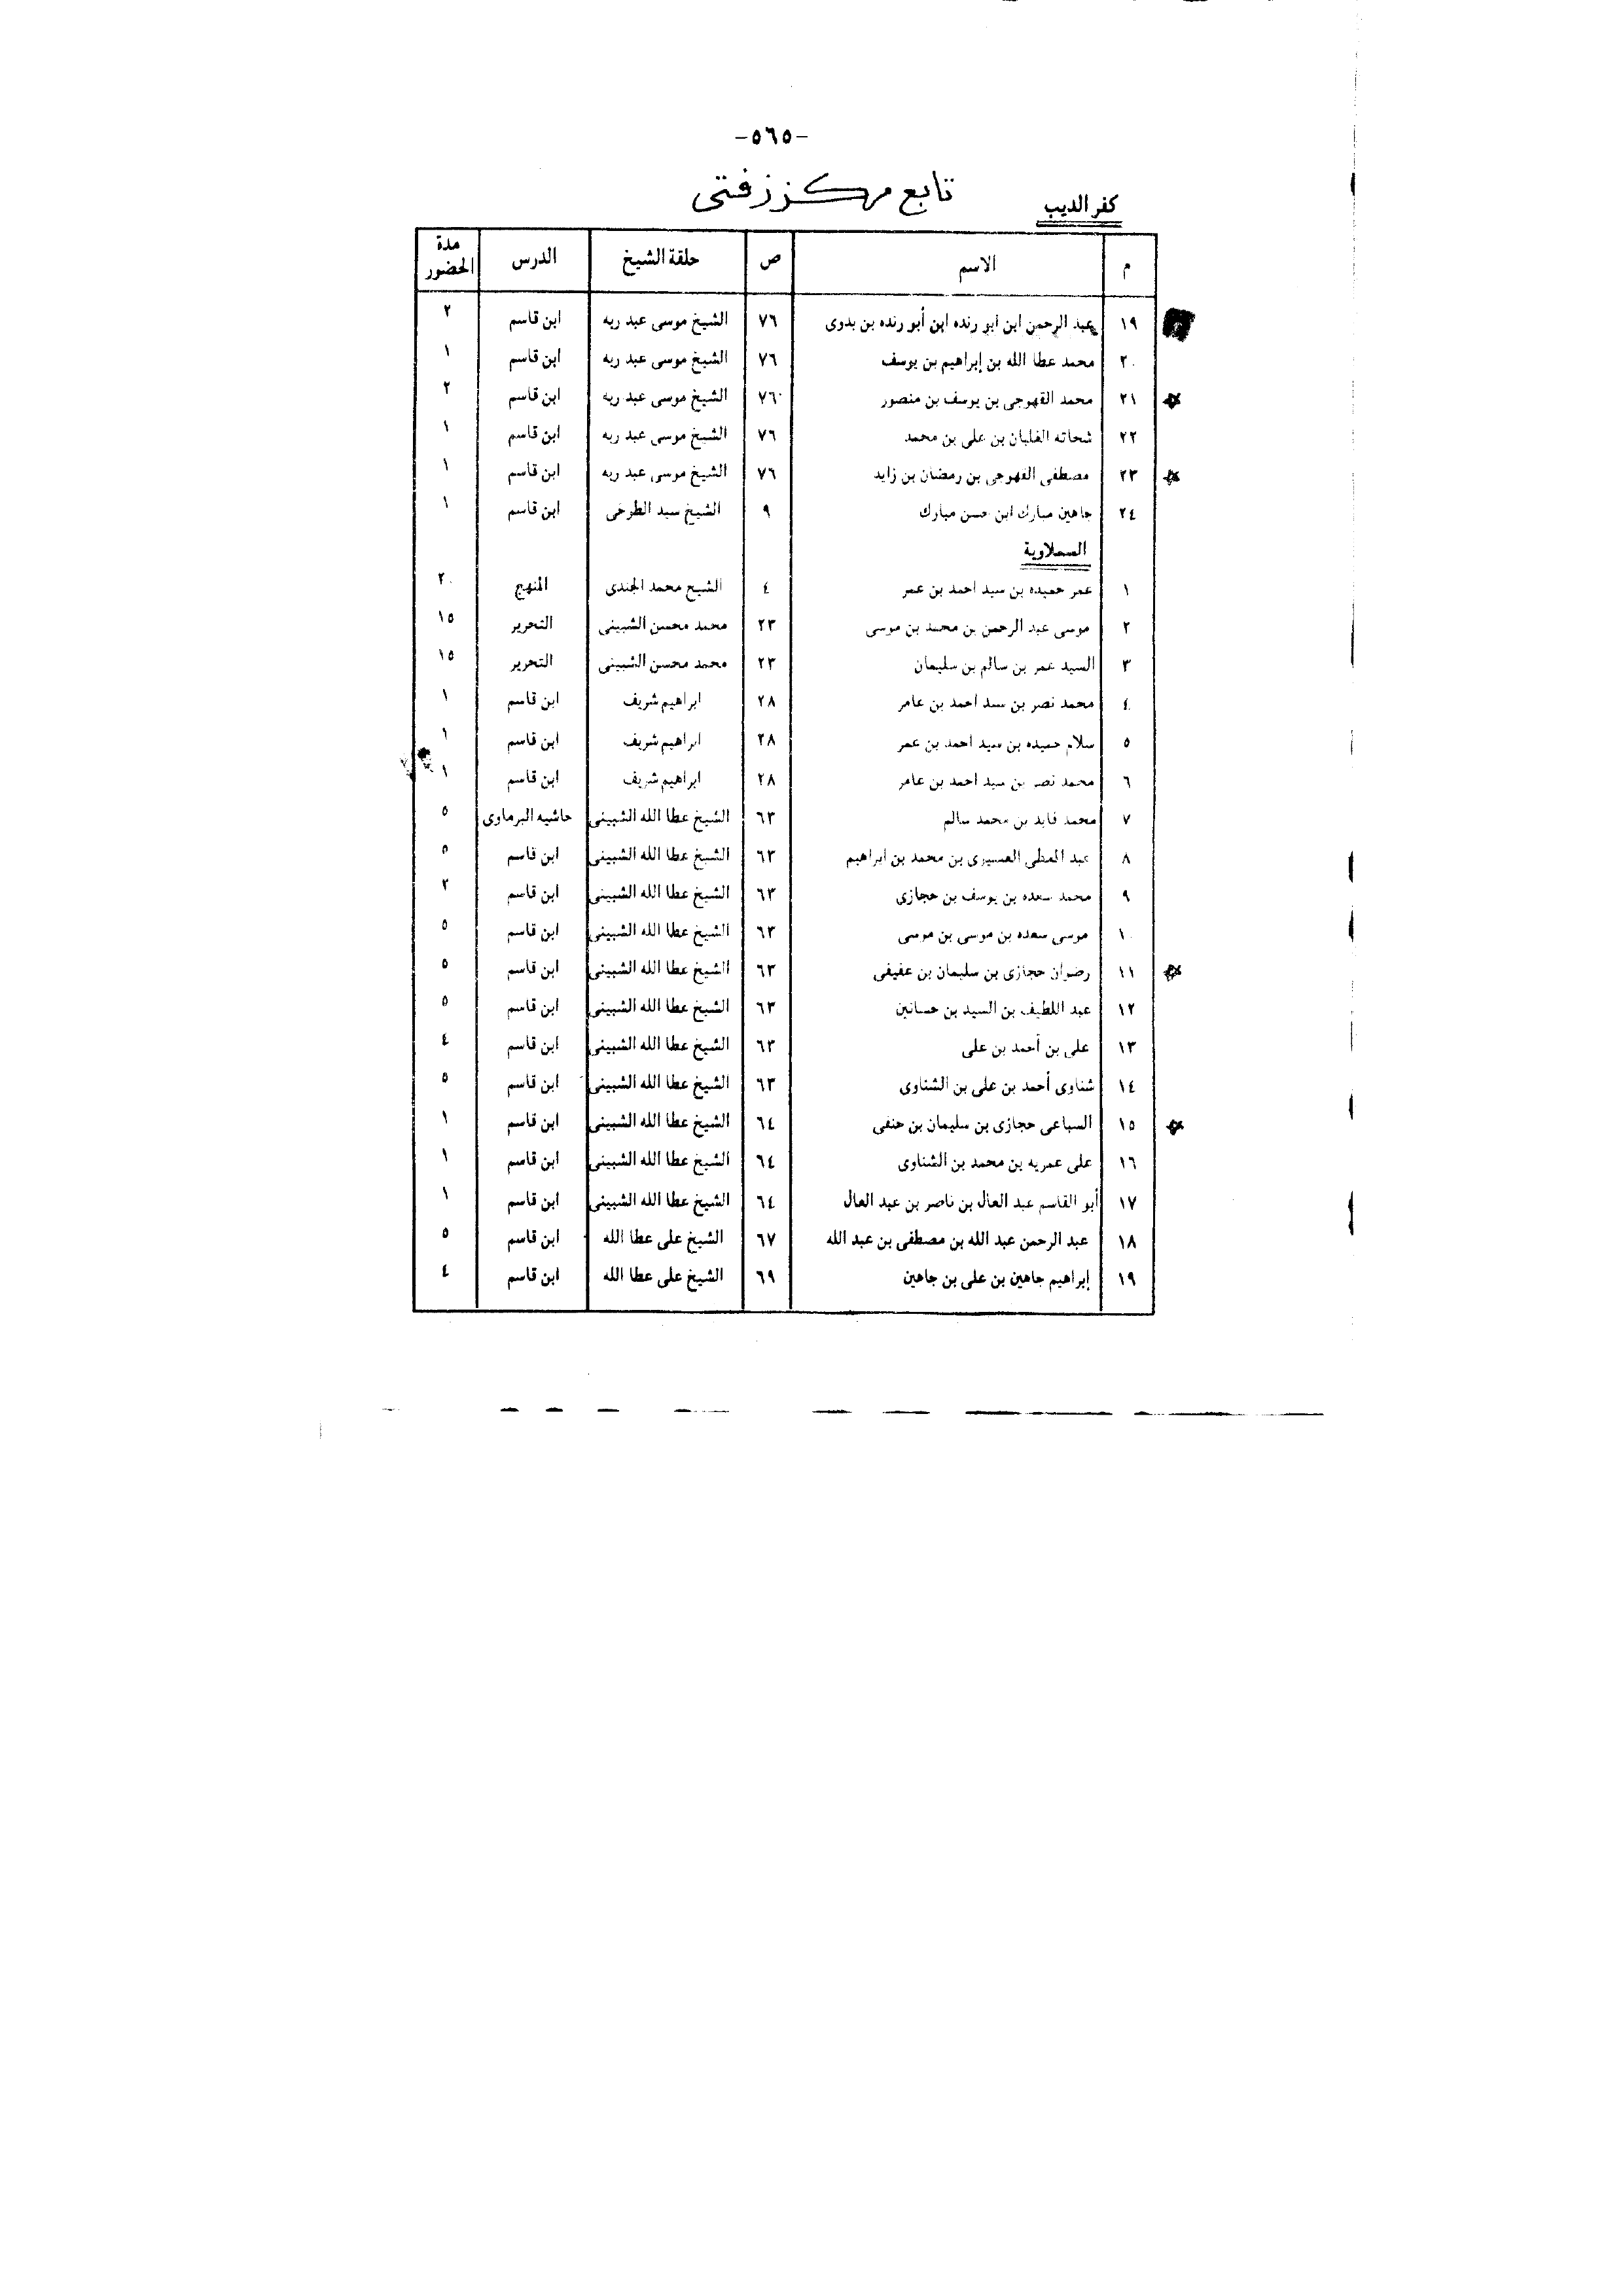 -٥٦٥-
تابع مركز زفتى
كفر الديب
م الاسم ص حلقة الشيخ الدرس مدة الحضور
١٩ عبد الرحمن ابن ابو رنده ابن أبو رنده بن بدوى ٧٦ الشيخ موسى عبد ربه ابن قاسم ٢
٢٠ محمد عطا الله بن إبراهيم بن يوسف ٧٦ الشيخ موسى عبد ربه ابن قاسم ١
٢١ محمد القهوجى بن يوسف بن منصور ٧٦ الشيخ موسى عبد ربه ابن قاسم ٢
٢٢ شحاته الغلبان بن على بن محمد ٧٦ الشيخ موسى عبد ربه ابن قاسم ١
٢٣ مصطفى القهوجى بن رمضان بن زايد ٧٦ الشيخ موسى عبد ربه ابن قاسم ١
٢٤ جاهين مبارك ابن حسن مبارك ٩ الشيخ سيد الطوخى ابن قاسم ١
السملاوية
١ عمر حميده بن سيد احمد بن عمر ٤ الشيخ محمد الجندى المنهج ٢٠
٢ موسى عبد الرحمن بن محمد بن موسى ٢٣ محمد محسن الشبينى التحرير ١٥
٣ السيد عمر بن سالم بن سليمان ٢٣ محمد محسن الشبينى التحرير ١٥
٤ محمد نصر بن سيد احمد بن عامر ٢٨ ابراهيم شريف ابن قاسم ١
٥ سلام حميده بن سيد احمد بن عمر ٢٨ ابراهيم شريف ابن قاسم ١
٦ محمد نصر بن سيد احمد بن عامر ٢٨ ابراهيم شريف ابن قاسم ١
٧ محمد فايد بن محمد سالم ٦٣ الشيخ عطا الله الشبينى حاشيه البرماوى ٥
٨ عبد المعطى بن محمد بن ابراهيم ٦٣ الشيخ عطا الله الشبينى ابن قاسم ٥
٩ محمد سعده بن يوسف بن حجازى ٦٣ الشيخ عطا الله الشبينى ابن قاسم ٢
١٠ موسى سعده بن موسى بن موسى ٦٣ الشيخ عطا الله الشبينى ابن قاسم ٥
١١ رضوان حجازى بن سليمان بن عفيفى ٦٣ الشيخ عطا الله الشبينى ابن قاسم ٥
١٢ عبد اللطيف بن السيد بن حسانين ٦٣ الشيخ عطا الله الشبينى ابن قاسم ٥
١٣ على بن أحمد بن على ٦٣ الشيخ عطا الله الشبينى ابن قاسم ٤
١٤ شناوى أحمد بن على بن الشناوى ٦٣ الشيخ عطا الله الشبينى ابن قاسم ٥
١٥ السباعى حجازى بن سليمان بن حنفى ٦٤ الشيخ عطا الله الشبينى ابن قاسم ١
١٦ على عمريه بن محمد بن الشناوى ٦٤ الشيخ عطا الله الشبينى ابن قاسم ١
١٧ أبو القاسم عبد العال بن ناصر بن عبد العال ٦٤ الشيخ عطا الله الشبينى ابن قاسم ١
١٨ عبد الرحمن عبد الله بن مصطفى بن عبد الله ٦٧ الشيخ على عطا الله ابن قاسم ٥
١٩ إبراهيم جاهين بن على بن جاهين ٦٩ الشيخ على عطا الله ابن قاسم ٤